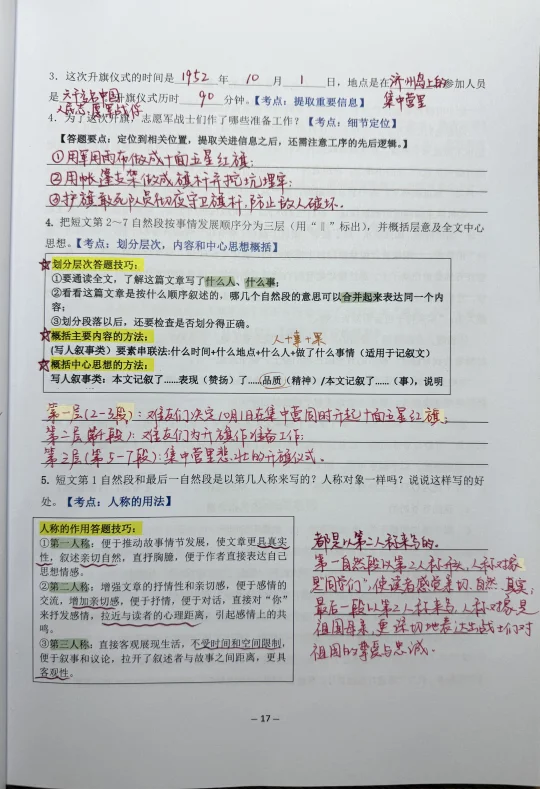 3. 这次升旗仪式的时间是 1952 年 10 月 1 日，地点是在济州岛上的集中营里 参加人员
是 六千多名中国人民志愿军战俘 升旗仪式历时 90 分钟。【考点：提取重要信息】
4. 为了这次升旗，志愿军战士们作了哪些准备工作？【考点：细节定位】
【答题要点：定位到相关位置，提取关进信息之后，还需注意工序的先后逻辑。】
①用军用雨布做成十面五星红旗；
②用帐篷支架做成旗杆并挖坑埋牢；
③护旗敢死队员彻夜守卫旗杆，防止敌人破坏。
4. 把短文第 2～7 自然段按事情发展顺序分为三层（用“‖”标出），并概括层意及全文中心
思想。【考点：划分层次，内容和中心思想概括】
☆划分层次答题技巧：
①要通读全文，了解这篇文章写了什么人、什么事；
②看看这篇文章是按什么顺序叙述的，哪几个自然段的意思可以合并起来表达同一个内
容；
③划分段落以后，还要检查是否划分得正确。
☆概括主要内容的方法： 人+事+果
(写人叙事类）要素串联法:什么时间+什么地点+什么人+做了什么事情（适用于记叙文）
☆概括中心思想的方法：
写人叙事类：本文记叙了……表现（赞扬）了……品质（精神）/本文记叙了……（事），说明
第一层（2-3段）：难友们决定10月1日在集中营同时升起十面五星红旗；
第二层（第4段）：难友们为升旗作准备工作；
第三层（第5-7段）：集中营里悲壮的升旗仪式。
5. 短文第 1 自然段和最后一自然段是以第几人称来写的？人称对象一样吗？说说这样写的好
处。【考点：人称的用法】
人称的作用答题技巧：
①第一人称：便于推动故事情节发展，使文章更具真实
性，叙述亲切自然，直抒胸臆，便于作者直接表达自己
思想情感。
②第二人称：增强文章的抒情性和亲切感，便于感情的
交流，增加亲切感，便于抒情，便于对话，直接对“你”
来抒发感情，拉近与读者的心理距离，引起感情上的共
鸣。
③第三人称：直接客观展现生活，不受时间和空间限制，
便于叙事和议论，拉开了叙述者与故事之间距离，更具
客观性。
都是以第二人称来写的。
第一自然段以第2人称 人称对象
是“同学们”，使读者感觉亲切、自然、真实；
最后一段以第2人称来写，人称对象是
祖国母亲，更深切地表达出战士们对
祖国的挚爱与忠诚。
— 17 —